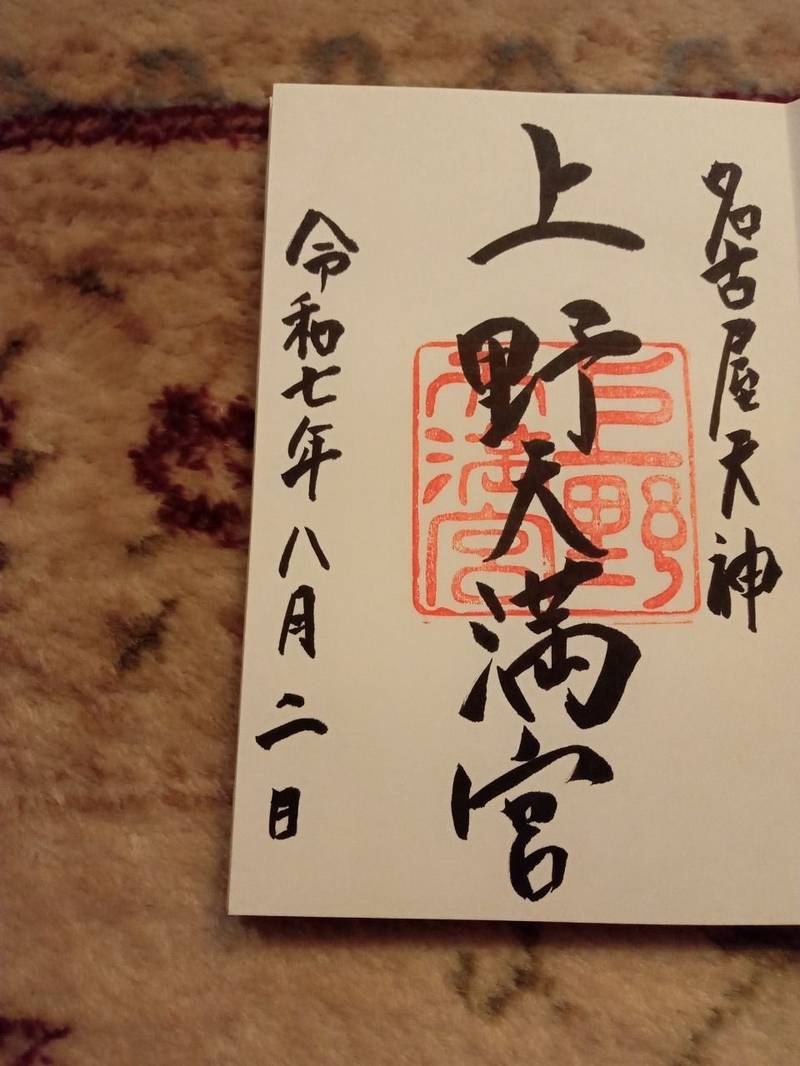 名古屋天神
上野天満宮
上野
天満宮
令和七年八月二日